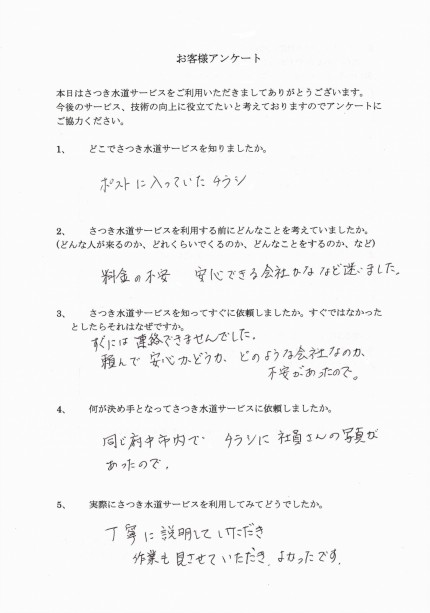 お客様アンケート
本日はさつき水道サービスをご利用いただきましてありがとうございます。
今後のサービス、技術の向上に役立てたいと考えておりますのでアンケートに
ご協力ください。
1、 どこでさつき水道サービスを知りましたか。
ポストに入っていたチラシ
2、 さつき水道サービスを利用する前にどんなことを考えていましたか。
(どんな人が来るのか、どれくらいでくるのか、どんなことをするのか、など)
料金の不安 安心できる会社かななど迷いました。
3、 さつき水道サービスを知ってすぐに依頼しましたか。すぐではなかった
としたらそれはなぜですか。
すぐには連絡できませんでした。
頼んで安心かどうか、どのような会社なのか、
不安があったので。
4、 何が決め手となってさつき水道サービスに依頼しましたか。
同じ府中市内で チラシに社員さんの写真が
あったので。
5、 実際にさつき水道サービスを利用してみてどうでしたか。
丁寧に説明していただき
作業も見させていただき、よかったです。